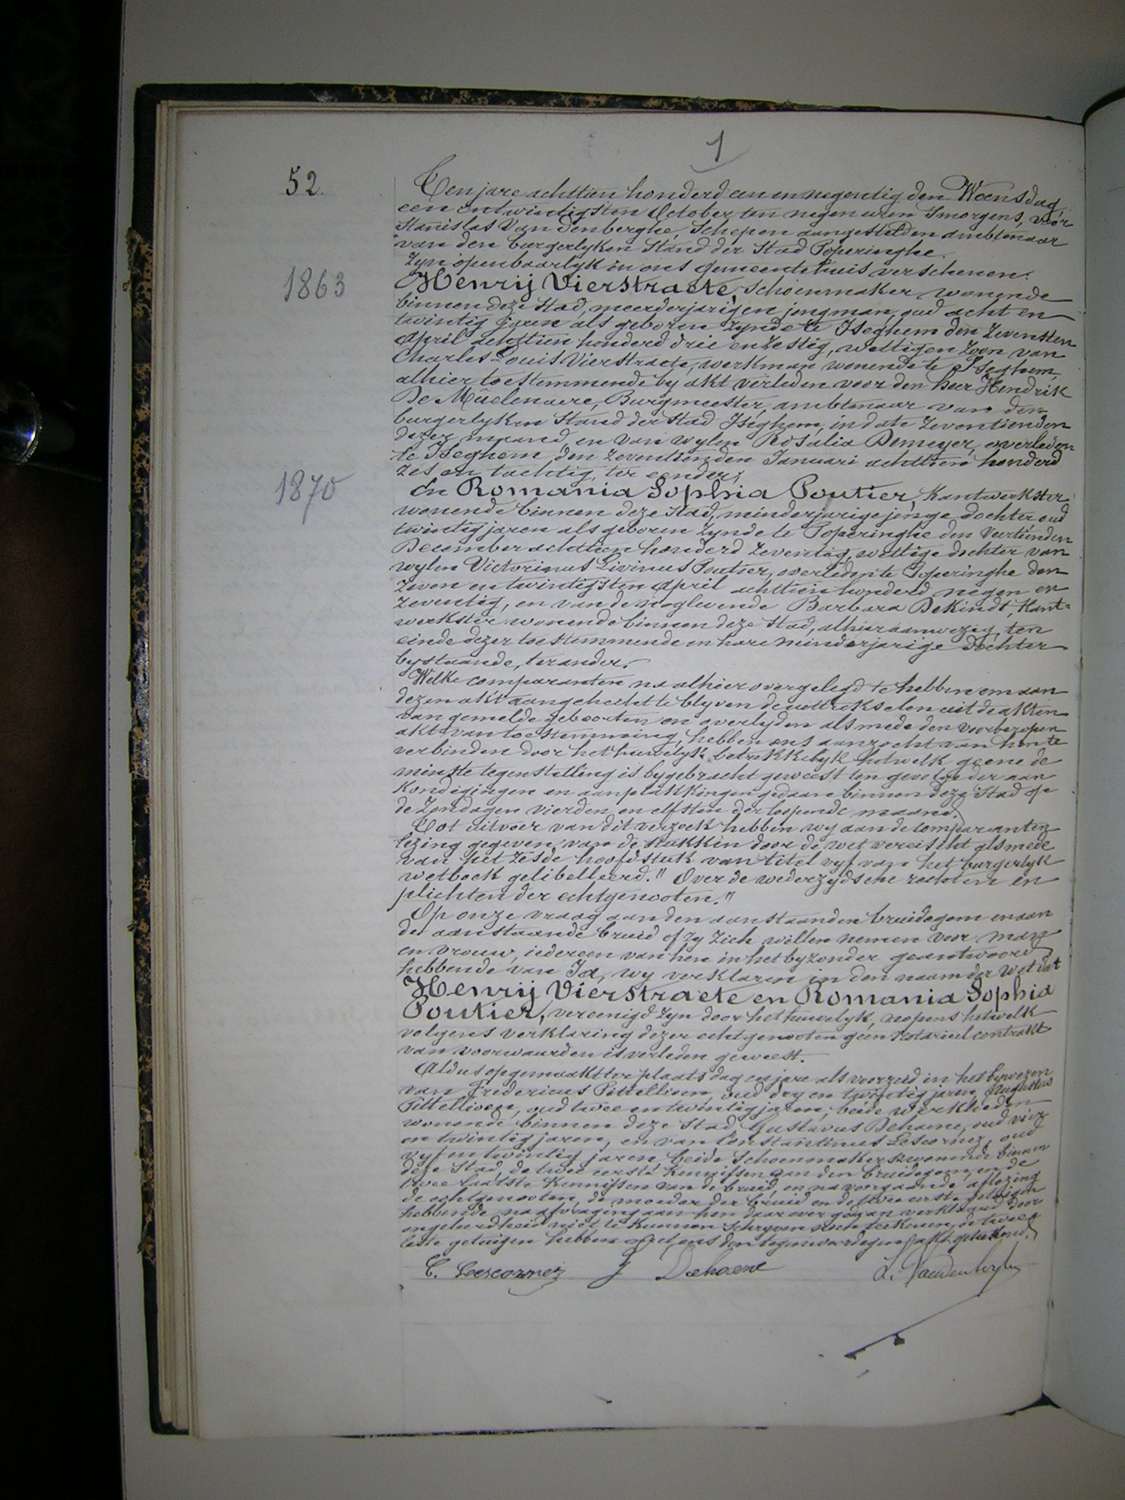 1
52.
Ten jare achttien honderd een en negentig den Woensdag
een en twintigsten October ten negen uren smorgens, vóór
Stanislas Vandenberghe, Schepen aangestelden ambtenaar
van den burgerlyken Stand der Stad Poperinghe.
Zyn openbaarlyk in ons gemeentehuis verschenen.
1863
Henrij Vierstraete, Schoenmaker wonende
binnen deze Stad, meerderjarigen jongman, oud acht en
twintig jaren als geboren zynde te Iseghem den zevensten
April achttien honderd drie en zestig, wettigen zoon van
Charles-Louis Vierstraete, werkman wonende te Iseghem,
alhier toestemmende by akt verleden voor den heer Hendrik
De Mûelenaere, Burgmeester, ambtenaar van den
burgerlyken Stand der Stad Iseghem, in date zeventienden
dezer maand, en van wylen Rosalia Demeyer, overleden
te Iseghem den zeventienden Januari achttien honderd
zes en tachtig, ter eender;
1870
En Romania Sophia Poutier, Kantwerkster
wonende binnen deze Stad, minderjarige jonge dochter oud
twintig jaren als geboren zynde te Poperinghe den veertienden
December achttien honderd zeventig, wettige dochter van
wylen Victorinus Livinus Poutier, overleden te Poperinghe den
zeven en twintigsten April achttien honderd negen en
zeventig, en van de nog levende Barbara Dekindt, Kant-
werkster wonende binnen deze Stad, alhier aanwezig, ten
einde dezer toestemmende en hare minderjarige dochter
bystaande, ter ander.
Welke comparanten na alhier overgelegd te hebben om aan
dezen akt aangehecht te blyven de uittrekselen uit de akten
van gemelde geboorten en overlyden alsmede den voorberopen
akt van toestemming, hebben ons aanzocht van hen te
verbinden door het huwelyk betrekkelyk hetwelk geene de
minste tegenstelling is bygebracht geweest ten gevolge der aan
kondigingen en aanplakkingen gedaan binnen deze Stad op
de zondagen vierden en elfsten der loopende maand.
Tot uitvoer van dit verzoek hebben wy aan de comparanten
lezing gegeven, van de stukken door de wet vereischt alsmede
van het zesde hoofdstuk van titel vyf van het burgerlyk
wetboek gelibelleerd. " Over de wederzydsche rechten en
plichten der echtgenooten."
Op onze vraag aan den aanstaanden bruidegom en aan
de aanstaande bruid of zy zich willen nemen voor man
en vrouw, iederen van hen in het byzonder geantwoord
hebbende van Ja, wy verklaren in den naam der Wet dat
Henrij Vierstraete en Romania Sophia
Poutier, vereenigd zyn door het huwelyk, nopens hetwelk
volgens verklaring dezer echtgenooten geen Notarieel contrakt
van voorwaarden is verleden geweest.
Aldus opgemaakt ter plaats dag en jare als voorzeid in het bywezen
van Fredericus Pittellioen, oud dry en twintig jaren, Augustus
Pittellioen, oud twee en twintig jaren, beide werklieden
wonende binnen deze Stad, Gustavus Dehaene, oud vier
en twintig jaren, en van Constantinus Lescornez, oud
vyf en twintig jaren, beide Schoenmakers wonende binnen
deze Stad, de twee eerste Kennissen van den bruidegom, en de
twee laatste Kennissen van de bruid, en na voorgaande aflezing
de echtgenooten, de moeder der bruid en de twee eerste getuigen
hebbende na afvraging aan hen daar over gedaan verklaard door
ongeleerdheid niet te kunnen schryven noch teekenen, de twee
leste getuigen hebben met ons den tegenwoordigen akt geteekend.
C. Lescornez G Dehaene S. Vandenberghe